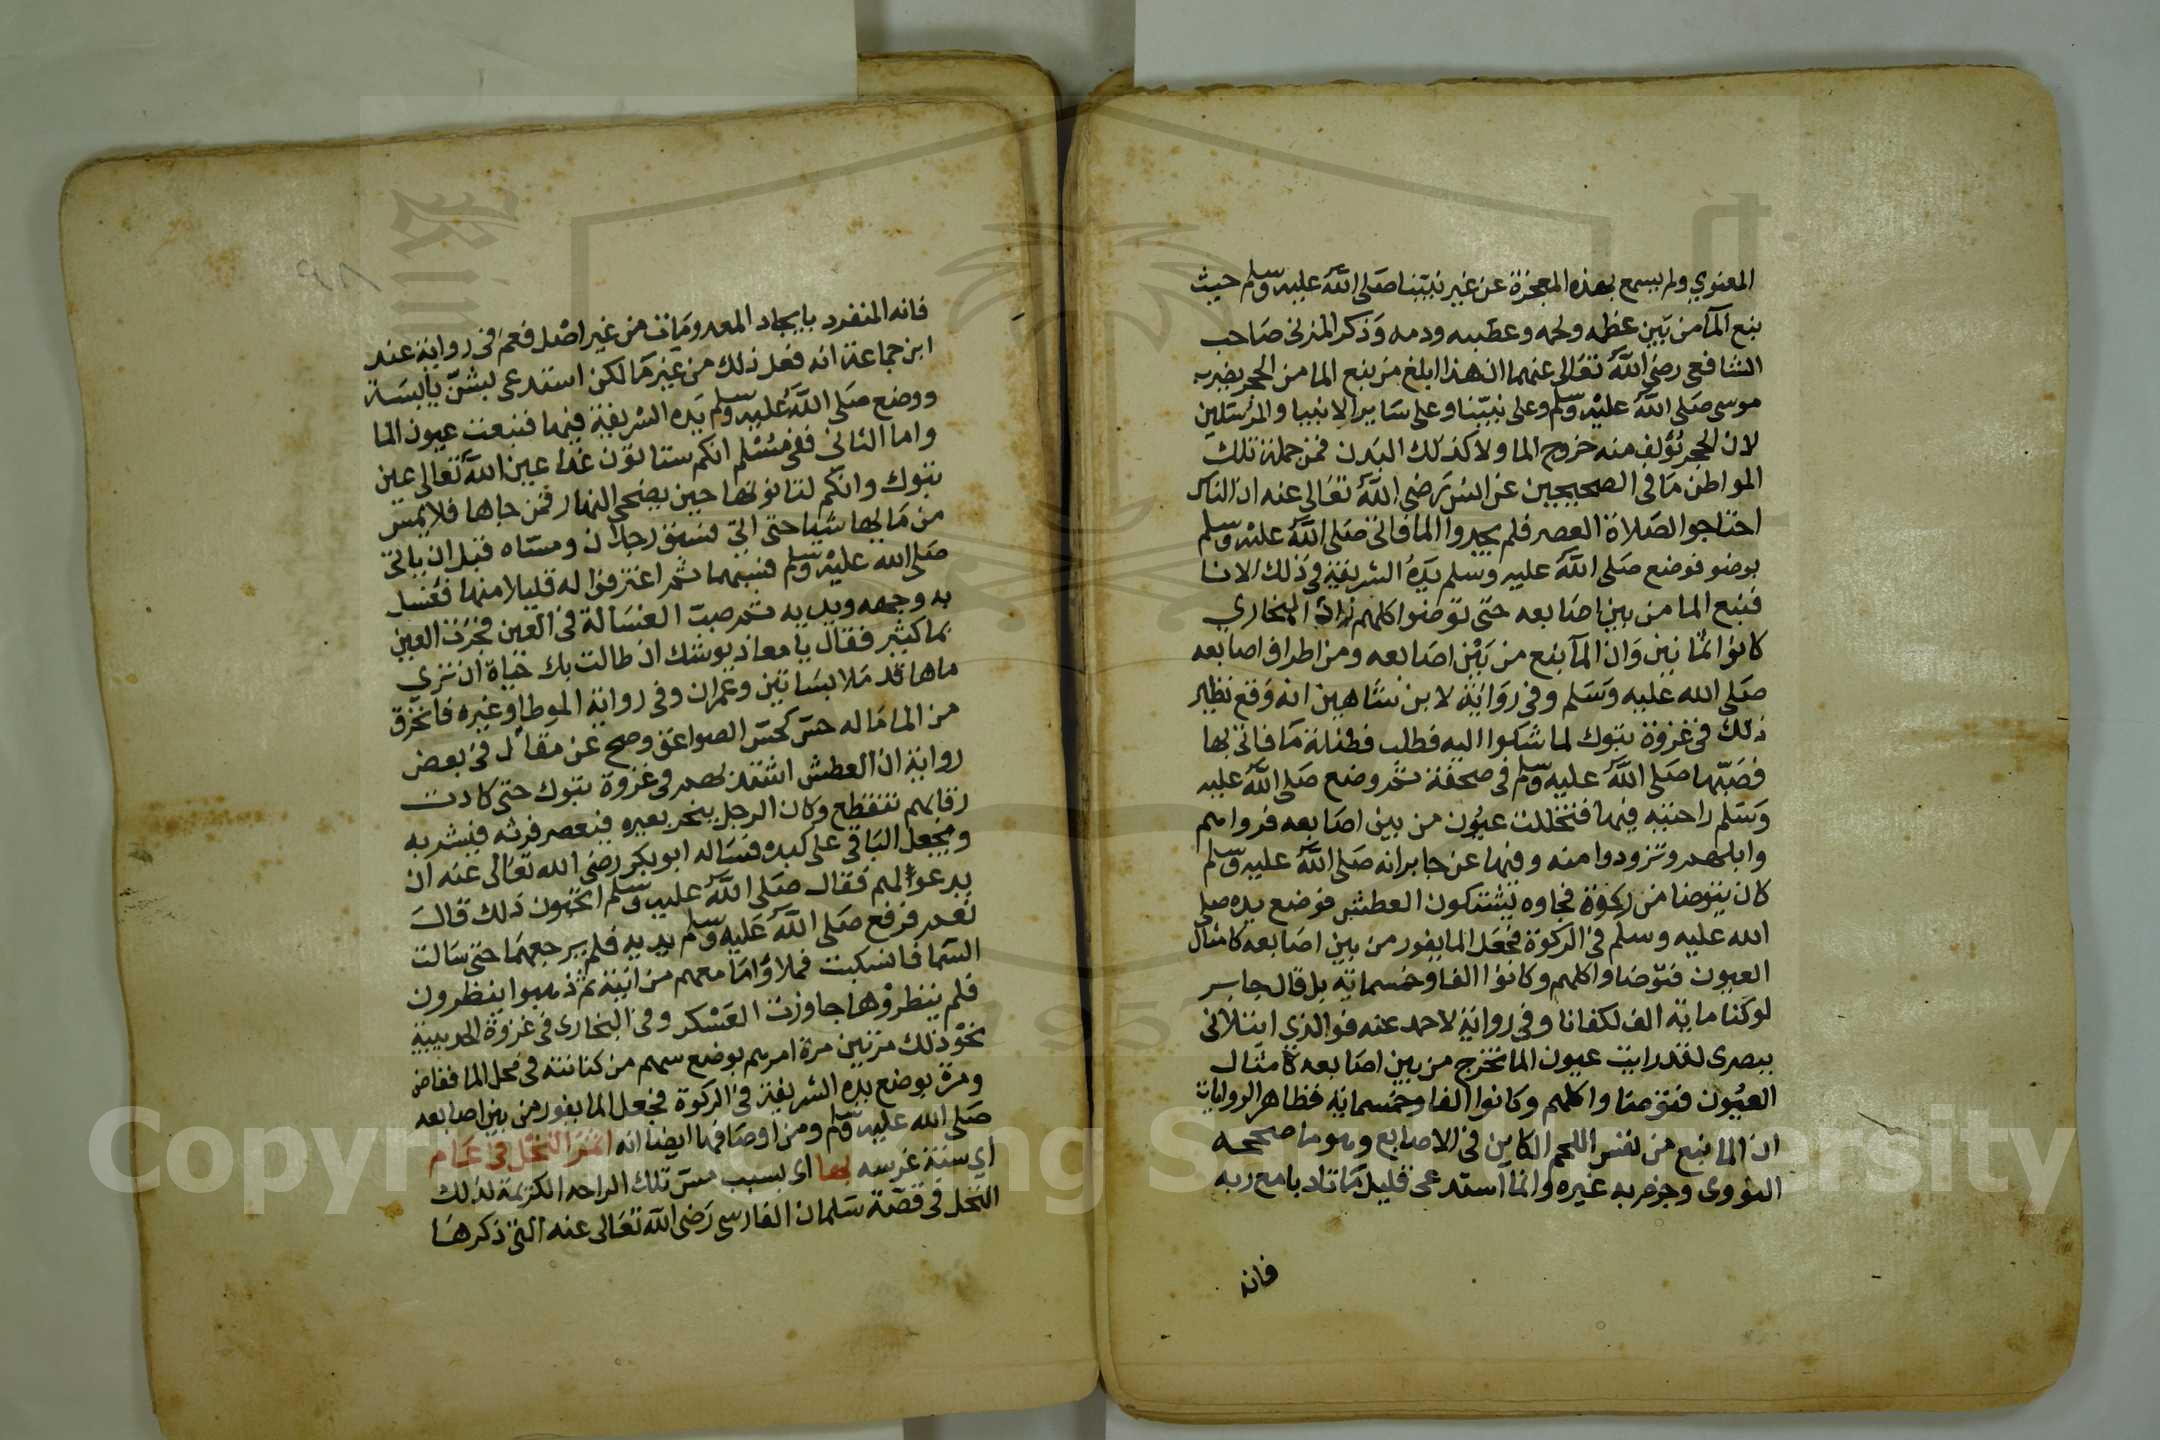 المعنوي ولم يسمع بهذه المعجزة عن غير نبينا صلى الله عليه وسلم حيث
نبع المآ من بين عظمه ولحمه وعصبه ودمه وذكر المزني صاحب
الشافعي رضي الله تعالى عنهما ان هذا ابلغ من نبع الما من الحجر بضربه
موسى صلى الله عليه وسلم وعلى نبينا وعلى ساير الانبيا والمرسلين
لان الحجر يؤلف منه خروج الما ولا كذلك البدن فمن جملة تلك
المواطن ما في الصحيحين عن انس رضي الله تعالى عنه ان الناس
احتاجوا لصلاة العصر فلم يجدوا الما فاتى صلى الله عليه وسلم
بوضو فوضع صلى الله عليه وسلم يده الشريفة في ذلك الانا
فنبع الما من بين اصابعه حتى توضئوا كلهم زاد البخاري
كانوا ثمانين وان المآ ينبع من بين اصابعه ومن اطراف اصابعه
صلى الله عليه وسلم وفي رواية لابن شاهين انه وقع نظير
ذلك في غزوة تبوك لما شكوا اليه فطلب فضلة ما فاتي بها
فصبها صلى الله عليه وسلم في صحفة ثم وضع صلى الله عليه
وسلم راحته فيها فتخللت عيون من بين اصابعه فرواهم
وابلهم وتزودوا منه وفيها عن جابر انه صلى الله عليه وسلم
كان يتوضا من ركوة فجاوه يشتكون العطش فوضع يده صلى
الله عليه وسلم في الركوة فجعل الما يفور من بين اصابعه كامثال
العيون فتوضاوا كلهم وكانوا الفا وخمسماية بل قال جابر
لو كنا ماية الف لكفانا وفي رواية لاحمد عنه فوالذي ابتلاني
ببصري لقد رايت عيون الما تخرج من بين اصابعه كامثال
العيون فتوضاوا كلهم وكانوا الفا وخمسماية فظاهر الروايات
ان الما نبع من نفس اللحم الكاين في الاصابع وهو ما صححه
النووي وجزم به غيره وانما استدعى قليل ما تادبا مع ربه
فانه
٩٨
فانه المنفرد بايجاد المعدومات من غير اصل فعم في رواية عند
ابن جماعة انه فعل ذلك من غير ما لكن استدعى بشن يابسة
ووضع صلى الله عليه وسلم يده الشريفة فيها فنبعت عيون الما
واما الثاني ففي مسلم انكم ستاتون غدا عين الله تعالى عين
تبوك وانكم لتاتونها حين يضحي النهار فمن جاها فلا يمس
من مايها شيا حتى اتي فسبق رجلان ومساه قبل ان ياتي
صلى الله عليه وسلم فنبههما ثم اغترفوا له قليلا منها فغسل
به وجهه ويديه ثم صبت الغسالة في العين فجرت العين
بما كثير فقال يا معاذ يوشك ان طالت بك حياة ان ترى
ماها قد ملا بساتين وعمران وفي رواية الموطا وغيره فانخرق
من الما ما له حس كحس الصواعق وصح عن مقال في بعض
رواية ان العطش اشتد بهم في غزوة تبوك حتى كادت
رقابهم تنقطع وكان الرجل ينحر بعيره فيعصر فرثه فيشربه
ويجعل الباقي على كبده فساله ابو بكر رضي الله تعالى عنه ان
يدعو لهم فقال صلى الله عليه وسلم اتحبون ذلك قال
نعم فرفع صلى الله عليه وسلم يديه فلم يرجعهما حتى سالت
السما فانسكبت فملاوا ما معهم من انية ثم ذهبوا ينظرون
فلم ينظروها جاوزت العسكر وفي البخاري في غزوة الحديبية
نحو ذلك مرتين مرة امرهم بوضع سهم من كنانته في محل الما ففاض
ومرة بوضع يده الشريفة في الركوة فجعل الما يفور من بين اصابعه
صلى الله عليه وسلم ومن اوصافها ايضا انه اثمر النخل في عام
اي سنة غرسه بها اي بسبب مس تلك الراحه الكريمة لذلك
النخل في قصة سلمان الفارسي رضي الله تعالى عنه التي ذكرها